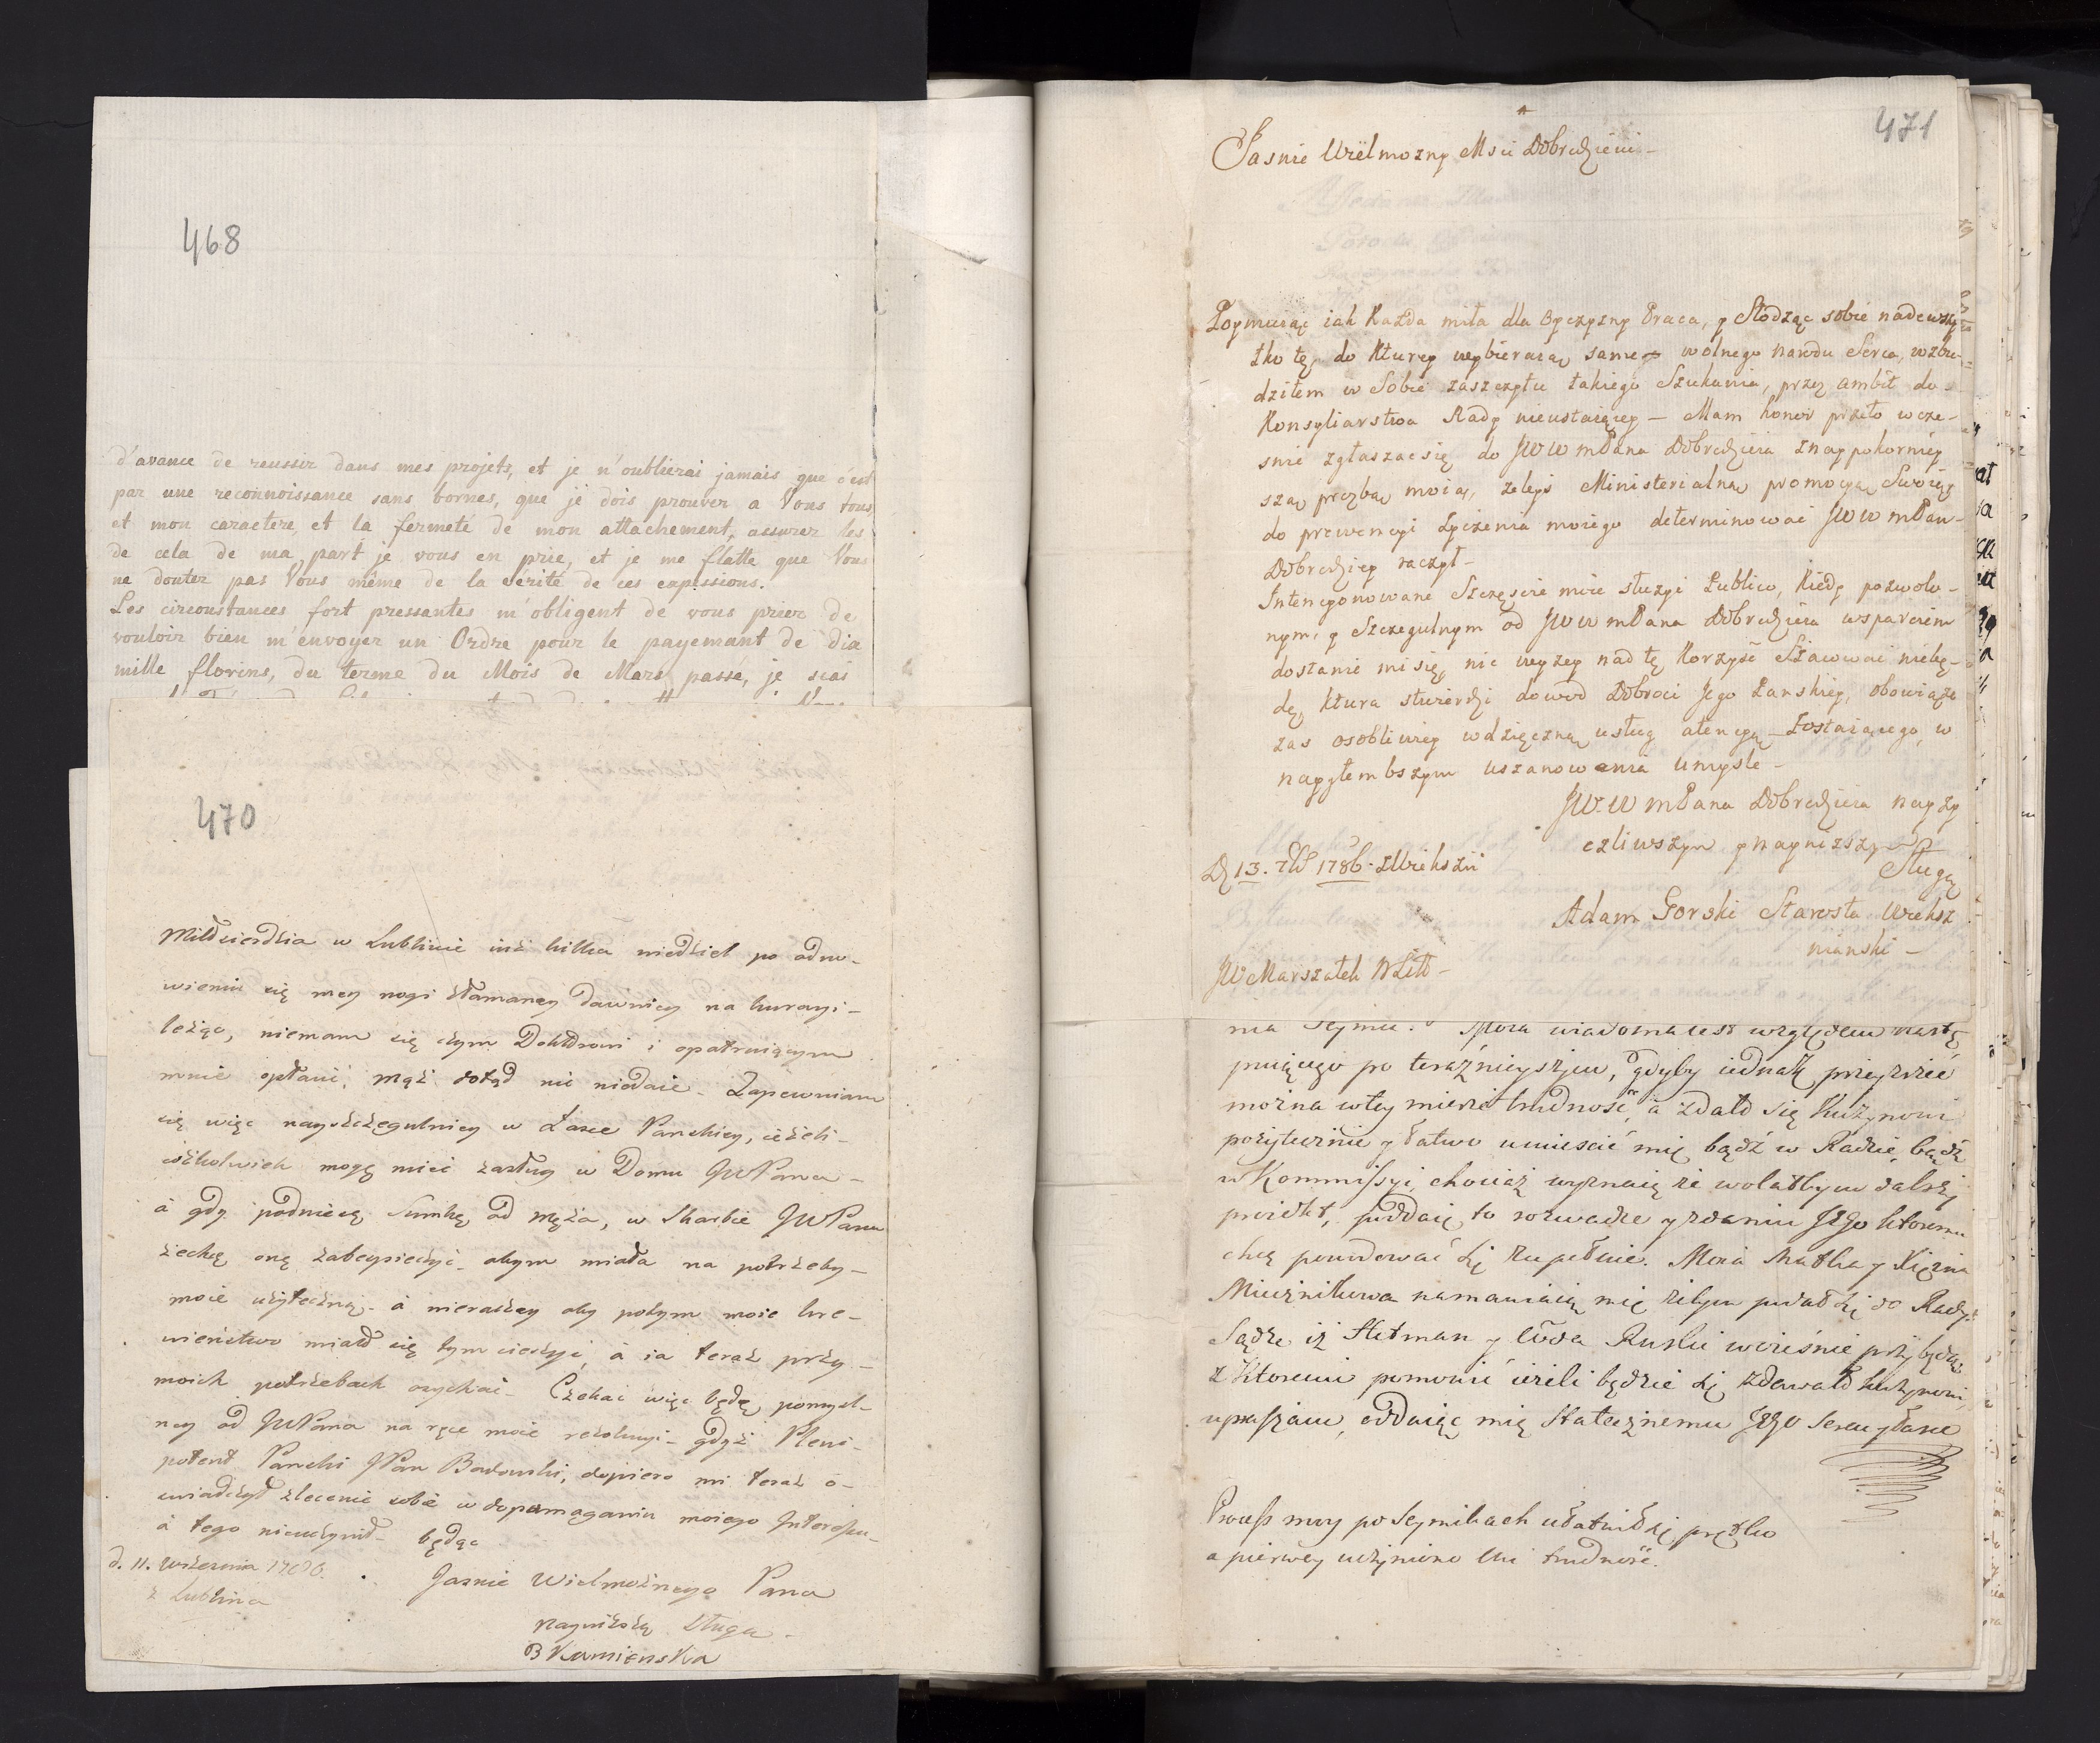 468
d'avance de reussir dans mes projets, et je n'oublierai jamais que c'est
par une reconnoissance sans bornes, que je dois prouver a Vous tous
et mon caractere, et la fermeté de mon attachement, assurez les
de cela de ma part je vous en prie, et je me flatte que Vous
ne doutez pas Vous même de la vérité de ces expressions.
Les circonstances fort pressantes m'obligent de vous prier de
vouloir bien m'envoyer un Ordre pour le payemant de dix
mille florins, du terme du Mois de Mars passé, je scai
470
Miłosierdzia w Lublinie iuż kilka niedziel po odno-
wieniu się mey nogi złamaney dawniey na kuracyi-
leżąc, niemam się czym Doktorowi i opatruiącym
mnie opłacić, mąż dotąd nic niedaie. Zapewniam
się więc nayszczegulniey w Łasce Panskiey, ieżeli-
iożkolwiek mogę mieć zasługi w Domu JWPana-
à gdy podniecą Sumkę od męża, w Skarbie JWPana
zechcę onę zabezpieczyć, abym miała na potrzeby-
moie użyteczną- à nieraczey aby potym moie kre-
wieństwo miało się tym cieszyć, à ia teraz przy-
moich potrzebach oczekać- Czekać więc będę pomysl-
ney od JWPana na ręce moie rezolucyi- gdyż Pleni-
potent Panski JPan Badowski, dopiero mi teraz o-
swiadczył zlecenie sobie w dopomaganiu moiego Interessu-
à tego nieuczynił- będąc
d. 11. Wrzesnia 1786.
z Lublina
Jasnie Wielmożnego Pana
Nayniższą Sługą-
B Kamienska
471
Jasnie Wielmozny Msci Dobrodzieiu-
Poymuiąc iak Kazda miła dla Oyczyzny Praca, y Słodząc sobie nadewszy
tko tę, do kturey wybieraią same wolnego narodu Serca, wzbu-
dziłem w Sobie zaszczytu takiego Szukania, przez ambit do-
Konsyliarstwa Rady nieustaiącey- Mam honor przeto wcze-
snie zgłaszac się do JWWmPana Dobrodzieia znaypokorniey
szą prozbą moią, zeleys Ministerialną promocyą Swoię
do prewencyi Zyczenia moiego determinowac JWWmPan-
Dobrodziey raczył-
Intencyonowane Szczęscie moie słuzyc Publico, kiedy pozwolo-
nym, y Szczegulnym od JWWmPana Dobrodzieia wsparciem
dostanie mi się, nic wyzey nad tę Korzysc Szacowac niebę-
dę, ktura stwierdzi dowod Dobroci Jego Panskiey, obowiąze
zas osobliwey wdzięczną usług atencyą- Zostaiącego w
naygłembszym uszanowania Umysle-
JWWmPana Dobrodzieia nayzy
czliwszym y naynizszym
Sługą
D 13. 7br 1786. z Wiekszń
Adam Gorski Starosta Wieksz
nianski-
JW Marszałek W Litt-
nia Seymu. Mora wiadoma iest względem nastę
puiącego po teraźnieyszym, gdyby iednak przeyrzeć
można w tey mierze trudność, à zdało się Kuzynowi
pożytecznie y łatwo umiescić mię bądź w Radzie, bądź
w Kommissyi, chociaż wyznaię że wolałbym dalszy
proiekt, poddaię to rozwadze y zdaniu JEgo któremu
chcę powodować się zupełnie. Moia Matka y Xiężna
Miecznikowa namawiaią mię żebym podał się do Rady.
Sądzę iż Hetman y Wda Ruski wcześnie przybędą,
z ktoremi pomowić ieżeli będzie się zdawało kuzynowi,
upraszam, oddaiąc mię Statecznemu JEgo Sercu y Łasce
Process moy po Seymikach ułatwił się prętko
a pierwey uczyniono mi trudność.